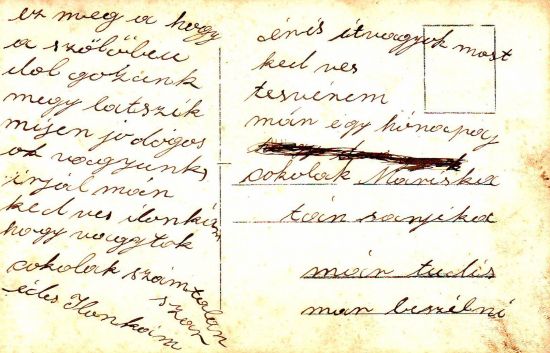 ez meg a hogy
a szőlőbeu
dol gozunk
megy latszik
mijen jo dogos
ok vagyunk
irjál mán
ked ves ilonkám
hogy vagytok
cokolak számtalan
szor
édes Ilonkám
énis itvagyok most
ked ves
tesvérem
mán egy hónapaj
cokolak Mariska
tán sanjika
már tudis
man beszélni